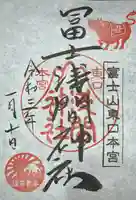 東口
本宮
冨士浅間神社
富士山東口本宮
令和三年
一月十日